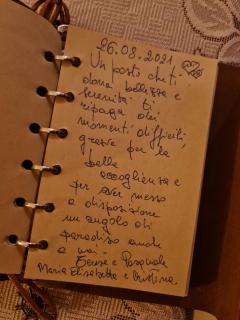 26.08.2021
Un posto che ti
dona bellezza e
serenità ti
ripaga dei
momenti difficili,
grazie per la
bella
accoglienza e
per aver messo
a disposizione
un angolo di
paradiso anche
a noi
e Pasquale
Maria Elisabetta e Cristina.